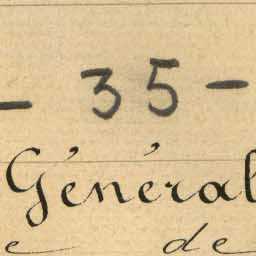 - 35 -
Général
e de